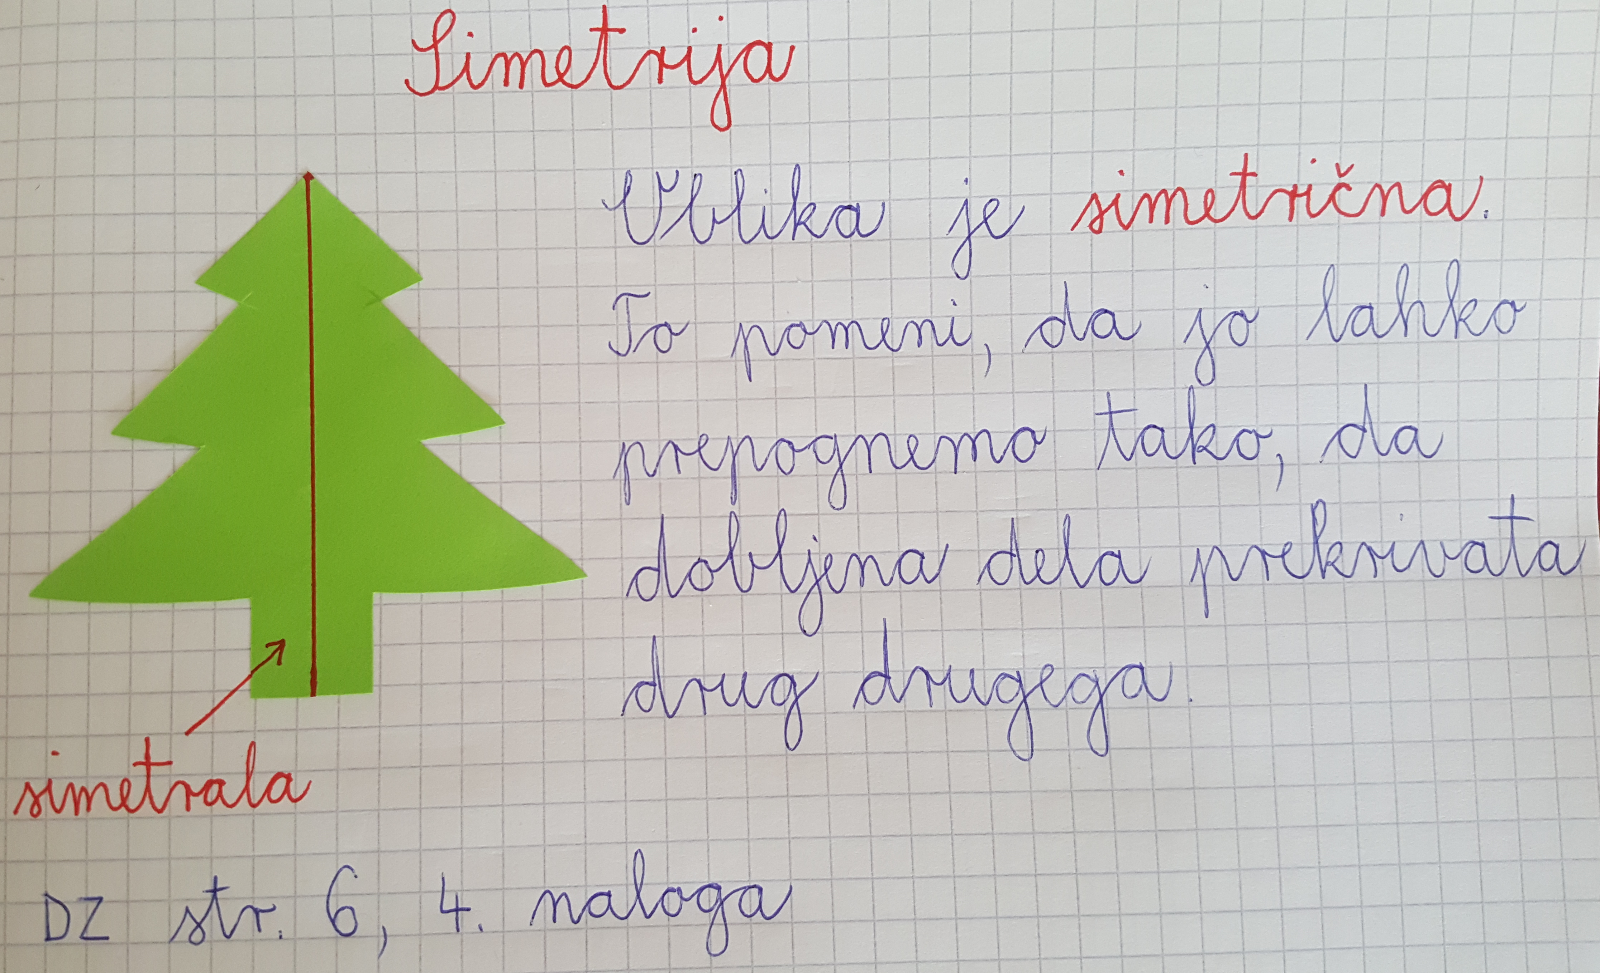 Simetrija
Oblika je simetrična.
To pomeni, da jo lahko
prepognemo tako, da
dobljena dela prekrivata
drug drugega.
simetrala
DZ str. 6, 4. naloga